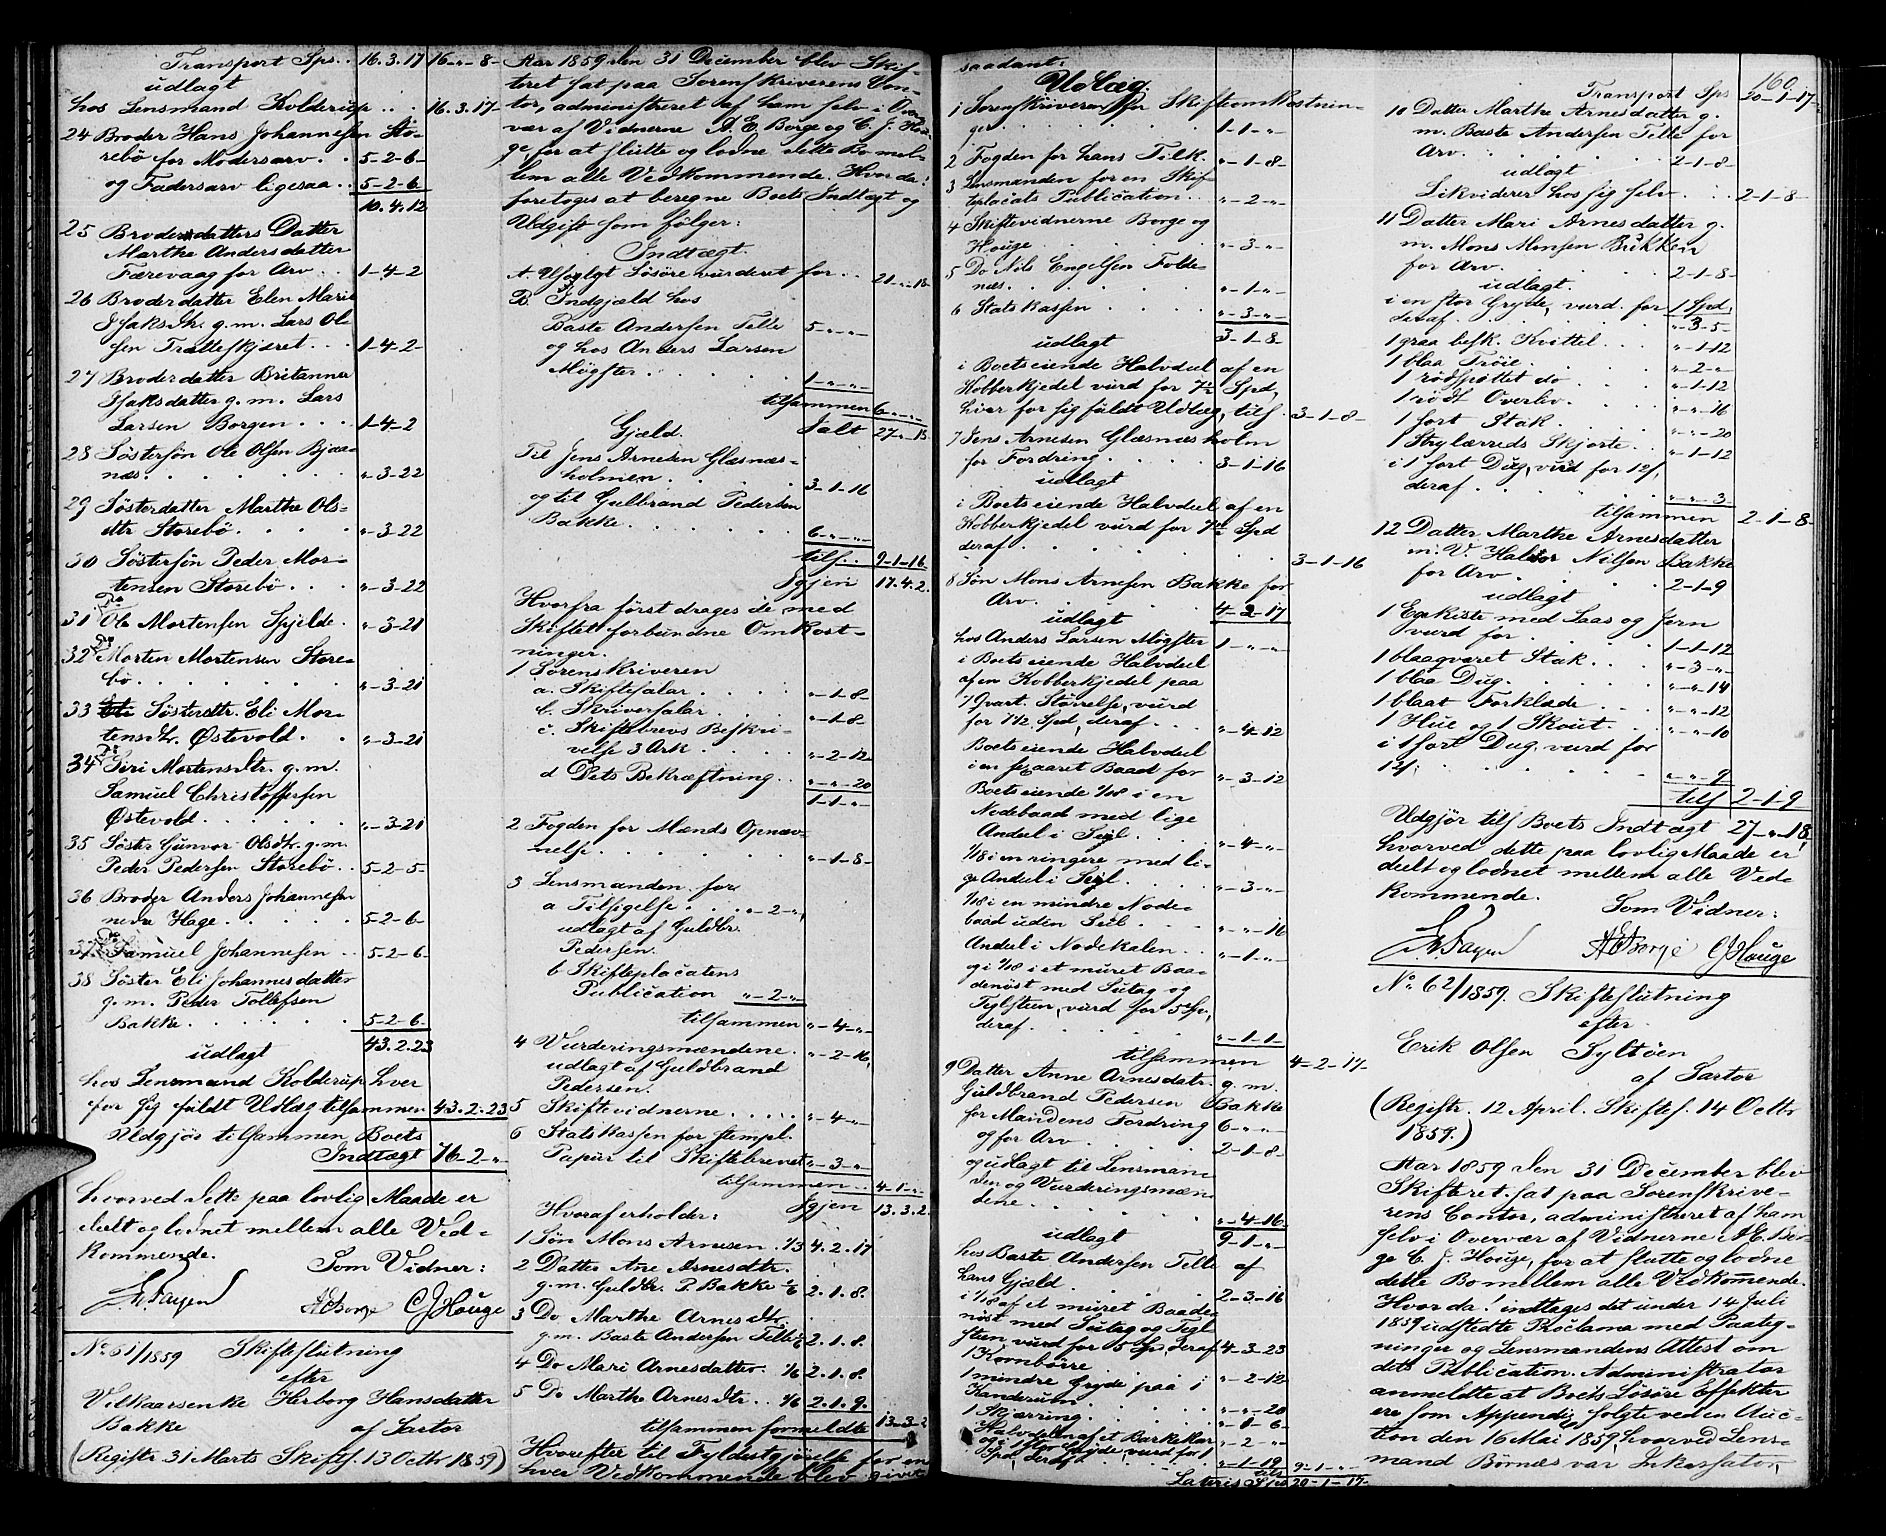 Transport Sps. . 16. 3. 17 16 - „ - 8 -
udlagt
hos Lensmand Kolderup . . . 16. 3. 17 -
24 Broder Hans Johannesen Sto-
rebö for Modersarv . . 5 - 2 - 6 -
og Fadersarv ligesaa . . 5 - 2 - 6
10. 4. 12
25 Broderdatters Datter
Marthe Andersdatter
Færevaag for Arv . . 1 - 4 - 2
26 Broderdatter Elen Marie
Isaksdtr. g. m. Lars Ol-
sen Tratteskjæret . . . 1 - 4 - 2 -
27 Broderdatter Britanna
Isaksdatter g. m. Lars
Larsen Borgen . . . 1 - 4 - 2
28 Söstersön Ole Olsen Bjaa-
næs . . . . . . „ - 3 - 22
29 Sösterdatter Marthe Ols-
dtr Storebö . . . . „ - 3 - 22
30 Söstersön Peder Mor-
tensen Storebö . . . „ - 3 - 22
31 Do Ole Mortensen Spjelde . „ - 3 - 21
32 Do Morten Mortensen Store-
bö . . . . . . . „ - 3 - 21
33 Eli Sösterdtr. Eli Mor-
tensdtr. Østevold . . „ - 3 - 21
34 Do Siri Mortensdtr. g. m.
Samuel Christoffersen
Østevold . . . . . „ - 3 - 21
35 Söster Gunvor Olsdtr. g. m.
Peder Pedersen Storebö . . 5 - 2 - 5 -
36 Broder Anders Johannesen
nedre Hage . . . . 5 - 2 - 6 -
37 Do Samuel Johannesen . . 5 - 2 - 6
38 Söster Eli Johannesdatter
g. m. Peder Tollefsen
Bakke . . . . . . 5 - 2 - 6 -
43. 2. 23
udlagt
hos Lensmand Kolderup hver
for sig fuldt Udlæg tilsammen 43. 2. 23
Udgjör tilsammen Boets
Indtægt 76 - 2 - „
hvorved dette paa lovlig Maade er
deelt og lodnet mellem alle Ved-
kommende. Som Vidner:
AEBorge CJHouge
No 61/1859 Skifteslutning
efter
Vilkaarsenke Herborg Hansdatter
Bakke af Sartor
(Registr. 31 Marts Skiftes. 13 Octbr 1859)
Aar 1859 den 31 December blev Skif-
teret sat paa Sorenskriverens Con-
tor, administreret af ham selv i Over-
vær af Vidnerne A. E. Borge og C. J. Hou-
ge for at slutte og lodne dette Bo mel-
lem alle Vedkommende. Hvorda!
foretoges at beregne Boets Indtægt og
Udgift som følger:
Indtægt.
A. Usolgt Løsøre vurderet for . . 21 - „ - 18
B. Indgjæld hos
Baste Andersen Telle 5 - „ - „
og hos Anders Larsen
Møgster . . . . . 1 - „ - „
tilsammen 6 - „ - „
Ialt 27 - „ - 18
Gjæld.
Til Jens Arnesen Glæsnæs-
holmen . . . . . 3 - 1 - 16
og til Gulbrand Pedersen
Bakke . . . . . 6 - „ - „
tils. . 9 - 1 - 16
Igjen 17. 4. 2.
Hvorfra først drages de med
Skiftet forbundne Omkost-
ninger.
1 Sorenskriveren
a. Skiftesalar . . . . „ - 1 - 8 -
b. Skriversalar . . . „ - 1 - 8 -
c. Skiftebrevs Beskri-
velse 3 Ark . . . . „ - 2 - 12
d Dets Bekræftning . . „ - „ - 20
1 - 1 - „
2 Fogden for Mænds Opnæv-
nelse . . . . . . „ - 1 - 8 -
3 Lensmanden for
a Tilsigelse . . . „ - 2 - „
udlagt af Guldbr.
Pedersen.
b Skifteplacatens
Publication „ - 2 - „
tilsammen „ - 4 - „
4 Vurderingsmændene . „ - 2 - 16
udlagt af Guldbrand
Pedersen.
5 Skiftevidnerne . . . . „ - 4 - „
6 Statskassen for stempl.
Papiir til Skiftebrevet „ - 3 - „
tilsammen . . 4 - 1 - „
Igjen 13. 3. 2.
Hvoraf erholder:
1 Søn Mons Arnesen . 1/3 4. 2. 17
2 Datter Ane Arnesdtr.
g. m. Guldbr. P. Bakke 1/6 2. 1. 8.
3 Do Marthe Arnesdtr.
g. m. Baste Andersen Telle 1/6 2. 1. 8.
4 Do Mari Arnesdatter . 1/6 2. 1. 8.
5 Do Marthe Arnesdtr . . 1/6 2. 1. 9.
tilsammen formeldte 13 - 3 - 2
Hvorefter til Fyldestgjörelse for en
hver Vedkommende blev givet
saadant:
Udlæg.
1 Sorenskriveren for Skifteomkostnin-
ger . . . . . . 1 - 1 - „
2 Fogden for hans Tilk. „ - 1 - 8 -
3 Lensmanden for en Skif-
teplacats Publication . . „ - 2 - „
4 Skiftevidnerne Borge og
Houge . . . . . „ - 3 - „
5 Do Nils Engelsen Folde-
næs . . . . . . „ - 1 - „
6 Statskassen . . . . „ - 3 - „
3 - 1 - 8 -
udlagt
i Boets eiende Halvdeel af en
Kobberkjedel vurd for 7½ Spd,
hver for sig fuldt Udlæg, tils. 3 - 1 - 8 -
7 Jens Arnesen Glæsnæsholm
for Fordring . . . . 3 - 1 - 16
udlagt
i Boets eiende Halvdeel af en
Kobberkjedel vurd for 7½ Spd
deraf . . . . . . 3 - 1 - 16
8 Søn Mons Arnesen Bakke for
Arv . . . . . . 4 - 2 - 17
udlagt
hos Anders Larsen Møgster 1 - „ - „
i Boets eiende Halvdeel
af en Kobberkjedel paa
7 Qvart. Størrelse, vurd
for 7½ Spd, deraf . . „ - 4 - 12
Boets eiende Halvdeel
i en sexaaret Baad for „ - 3 - 12
Boets eiende 1/18 i en
Nodebaad med lige
Andeel i Seil . . . „ - 4 - „
1/18 i en ringere med li-
ge Andeel i Seil . . . „ - 3 - „
1/18 i en mindre Node-
baad uden Seil . . „ - „ - 16
Andeel i Nodekalen . . „ - 1 - „
og i 1/18 i et muret Baa-
denøst med Sutag og
Teglsteen, vurd for 5 Sp.,
deraf . . . . . . „ - 1 - 1 -
tilsammen 4 - 2 - 17 -
9 Datter Anne Arnesdatr. g. m.
Guldbrand Pedersen Bakke
for Mandens Fordring 6 - „ - „
og for Arv . . . . 2 - 1 - 8 -
og udlagt til Lensman-
den og Vurderingsmæn-
dene . . . . . . „ - 4 - 16
9 - 1 - „
udlagt
hos Baste Andersen Telle af
hans Gjæld . . . . 2 - 3 - 16
i 1/18 af et muret Baade-
nøst med Sutag og Tegl-
steen vurd for 5 Sp deraf 4 - 3 - 23
1 Kornbørre
1 mindre Gryde paa 1
Kanderum . . . . „ - 2 - 12
„ - „ - 20
„ - 1 - 6 -
Halvdelen af et Barkekar „ - 2 - „
og i 1 stor Gryde vurd for 1
Spd, deraf . . . . „ - 1 - 19 tils 9 - 1 - „
Lateris Spd 20 - 1 - 17 -
160.
Transport Sps 20 - 1 - 17 -
10 Datter Marthe Arnesdatter g.
m. Baste Andersen Telle for
Arv . . . . . . 2 - 1 - 8 -
udlagt
Likviderer hos sig selv . . . 2 - 1 - 8 -
11 Datter Mari Arnesdatter g.
m. Mons Monsen Brekken
for Arv . . . . . 2 - 1 - 8 -
udlagt.
i en stor Gryde, vurd. for 1 Spd
deraf . . . . . . „ - 3 - 5 -
1 graa besk. Kvittel . . . „ - 1 - 12
1 blaa Trøie . . . . „ - 2 - „
1 rødspøttet do . . . . „ - 1 - 12
1 rødt Overliv . . . . „ - „ - 16
1 sort Stak . . . . „ - „ - 20
1 Strylærreds Skjorte . . „ - 1 - 12
i 1 sort Dug, vurd for 12 /,
deraf . . . . . . „ - „ - 3
tilsammen 2 - 1 - 8 -
12 Datter Marthe Arnesdatter
m. V. Halvor Nilsen Bakke
for Arv . . . . . 2 - 1 - 9
udlagt
1 Egekiste med Laas og Jern
vurd for . . . . . 1 - 1 - 12
1 blaagvaret Stak . . . „ - 3 - „
1 blaa Dug . . . . . „ - „ - 14
1 blaat Forklæde . . . „ - „ - 12
1 Hue og 1 Skout . . . „ - „ - 10
i 1 sort Dug vurd for
12 /, . . . . . . „ - „ - 9
tils 2 - 1 - 9
Udgjør tils Boets Indtægt 27 - „ - 18
hvorved dette paa lovlig Maade er
deelt og lodnet mellem alle Ved-
kommende. Som Vidner:
AEBorge CJHouge
No 62/1859. Skifteslutning
efter
Erik Olsen Syltøen
af Sartor
(Registr. 12 April. Skiftes. 14 Octbr
1859.)
Aar 1859 den 31 December blev
Skifteret sat paa Sorenskrive-
rens Contor, administreret af ham
selv i Overvær af Vidnerne A. E. Bor-
ge C. J. Houge, for at slutte og lodne
dette Bo mellem alle Vedkommende.
Hvorda! indtages det under 14 Juli
1859 udstedte Proclama med Paateg-
ninger og Lensmandens Attest om
dets Publication. Administrator
anmeldte at Boets Løsøre Effekter
ere som Appendix solgte ved en Auc-
tion den 16 Mai 1859, hvorved Lens-
mand Børnæs var Inkassator,